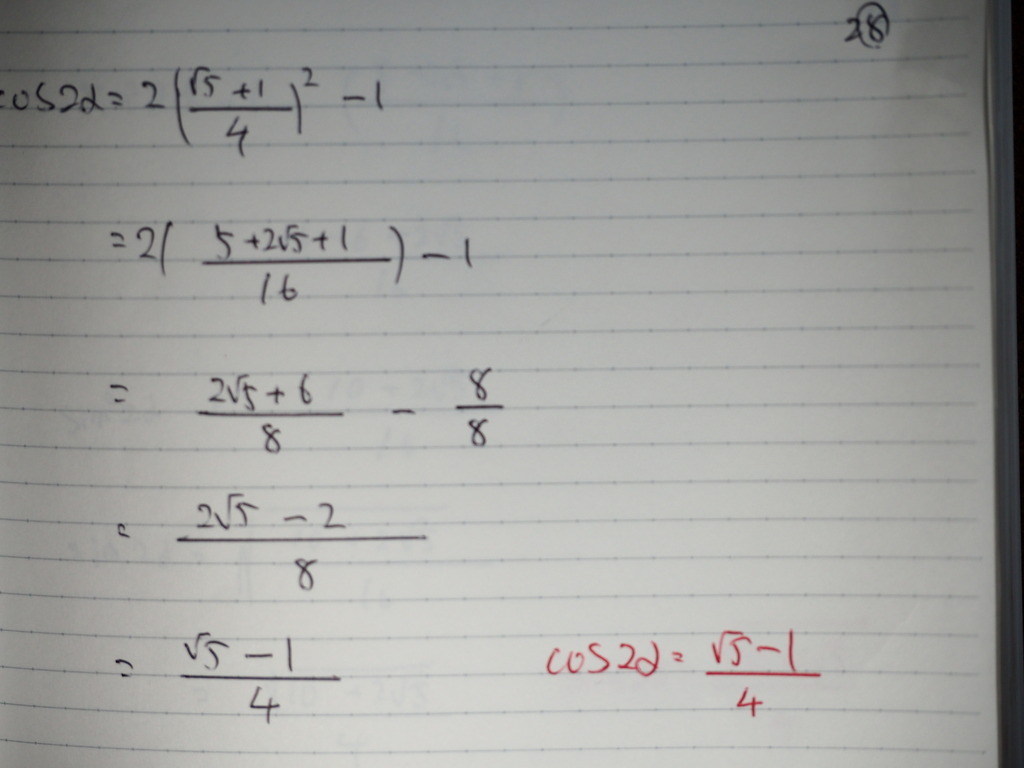 28
cos2α = 2(√5+1/4)² - 1
= 2(5+2√5+1/16) - 1
= 2√5+6/8 - 8/8
= 2√5-2/8
= √5-1/4 cos2α = √5-1/4